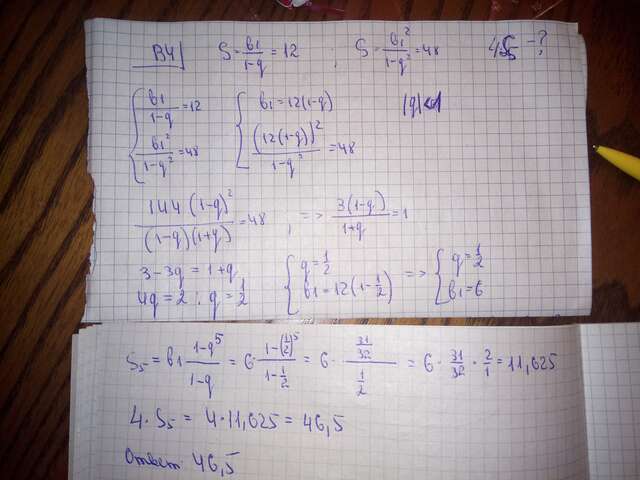 B4 S = b₁/(1-q) = 12 ; S = b₁²/(1-q²) = 48 4S₅ - ?
{ b₁/(1-q) = 12 { b₁ = 12(1-q) |q|<1
b₁²/(1-q²) = 48 (12(1-q))²/(1-q²) = 48
144(1-q)²/((1-q)(1+q)) = 48 ; => 3(1-q)/(1+q) = 1
3-3q = 1+q { q = 1/2 => { q = 1/2
4q = 2 ; q = 1/2 b₁ = 12(1-1/2) b₁ = 6
S₅ = b₁ · (1-q⁵)/(1-q) = 6 · (1-(1/2)⁵)/(1-1/2) = 6 · (31/32)/(1/2) = 6 · 31/32 · 2/1 = 11,625
4 · S₅ = 4 · 11,625 = 46,5
Ответ: 46,5